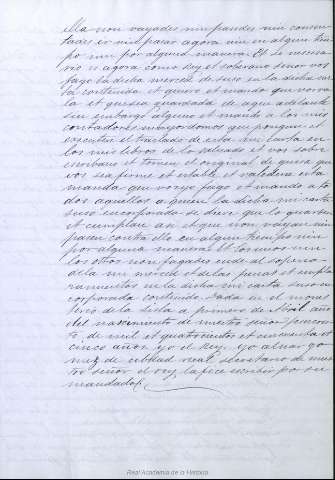 ella non vayades nin pasedes nin consin
tades ir nin pasar agora nin en algun tiem
po nin por alguna manera Et si necesa
rio es agora como Rey et soberano señor vos
fago la dicha merced de suso en la dicha car
ta contenida et quiero et mando que vos va
la et que sea guardada de aqui adelante
sin embargo alguno et mando a los mis
contadores mayordomos que pongan et
asienten el traslado de esta mi carta en
los mis libros de lo salvado et vos sobre
escriban et tornen el original de guisa que
vos sea firme et estable et valedera esta
manda que vos yo fago et mando a to
dos aquellos a quien la dicha mi carta
suso encorporada se dirige que lo guarden
et cumplan asi et que non vayan nin
pasen contra ello en algun tiempo nin
por alguna manera Et los unos nin
los otros non fagades ende al so pena
de la mi merced et de las penas et empla
zamientos en la dicha mi carta suso en
corporada contenido. Dada en el mones
terio de la              a primero de Abril año
del nascimiento de nuestro señor Jesucris
to de mil et quatrocientos et cincuenta et
cinco años. Yo el Rey. Yo alvar go
mez de cibdad real secretario de nues
tro señor el rey la fice escribir por su
mandado.
Real Academia de la Historia